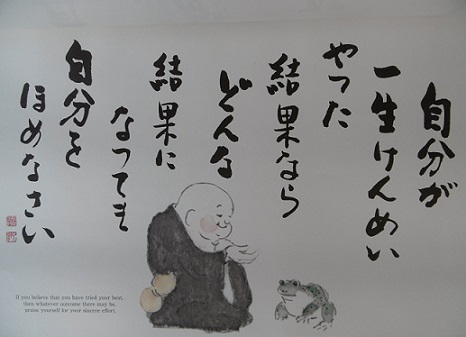 自分が
一生けんめい
やった
結果なら
どんな
結果に
なっても
自分を
ほめなさい
If you believe that you have tried your best,
then whatever outcome there may be,
praise yourself for your sincere effort.